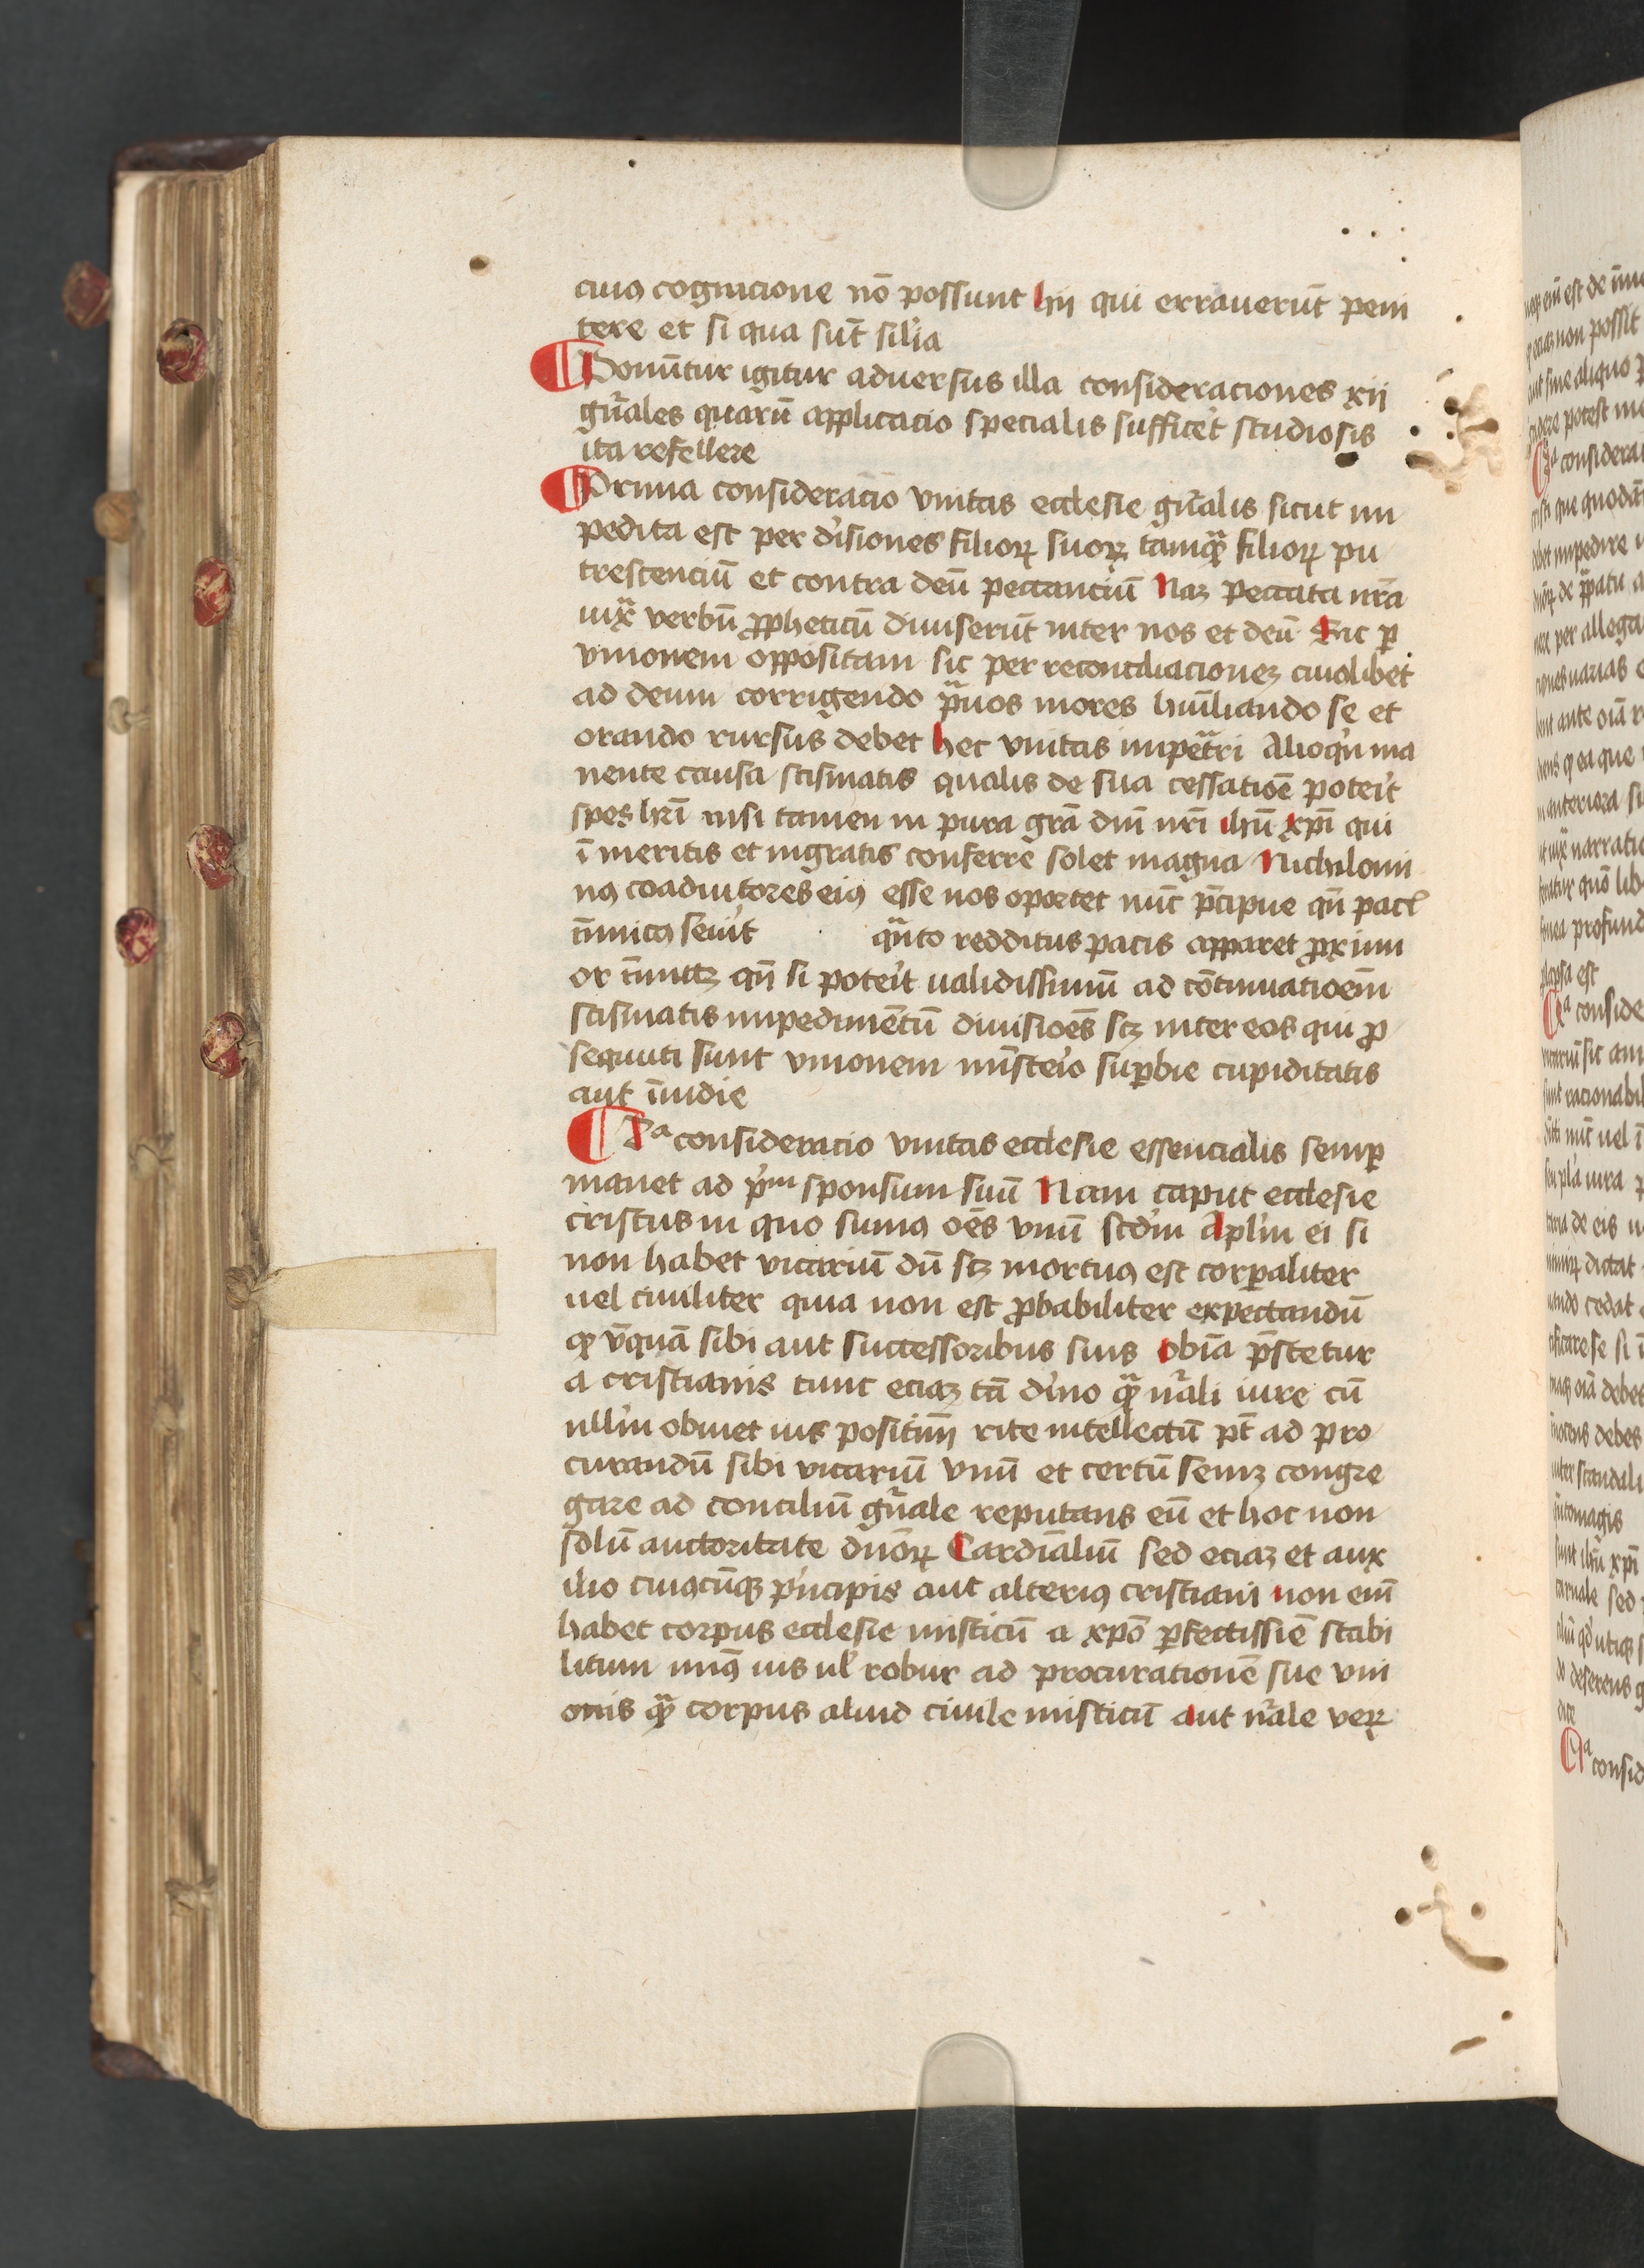 cuiꝰ cognicione nō possunt hij qui errauerūt peni
tere et si qua sūt sil'ia
¶ Ponūtur igitur aduersus illa consideraciones xij
gn̄ales quarū applicacio specialis sufficet studiosis
ita refellere
¶ Prima consideracio vnitas ecclesie gn̄alis sicut im
pedita est per d'isiones filioꝝ suoꝝ tamqᷓ filioꝝ pu
trescenciū et contra deū peccanciū Naꝫ peccata nr̄a
iuxᷓ verbū ꝓpheticū diuiserūt inter nos et deū Sic ꝑ
vnionem oppositam sic per reconciliacioneꝫ cuiuslibet
ad deum corrigendo pᷓuos mores hūiliando se et
orando rursus debet hec vnitas impetᷓri Alioqⁱn ma
nente causa scismatis qualis de sua cessatiōe poterit
spes hr̄i nisi tamen in pura grā dn̄i nr̄i ihū xp̄i qui
ī meritis et ingratis conferre solet magna Nichilomi
nꝰ coadiutores eiꝰ esse nos oportet nūc p̄cipue qn̄ pacē
īimicꝰ seuit qᷓnto redditus pacis apparet ꝓxim
or qn̄ si poterit ualidissimū ad cōtinuatioēm
scismatis impedimētū diuisioēs scꝫ inter eos qui ꝓ
sequuti sunt vnionem mīsterio suꝑbie cupiditatis
aut īuidie
¶ 2ᵃ consideracio vnitas ecclesie essencialis semꝑ
manet ad pⁱm sponsum suū Nam caput ecclesie
cristus in quo sumꝰ oēs vnū scd'm Apl'm ei si
non habet vicariū dū scꝫ mortuꝰ est corꝑaliter
uel ciuiliter quia non est ꝓbabiliter expectandū
qꝫ v̄quā sibi aut successoribus suis obīa p̄stetur
a cristianis tunc eciaꝫ tā d'ino qᷓ nᷓali iure cū
null'm obuiet ius positiuū rite intellectū pt̄ ad pro
curandū sibi vicariū vnū et certū semꝫ congre
gare ad conciliū gn̄ale reputans eū et hoc non
solū auctoritate dn̄oꝝ Cardīaliū sed eciaꝫ et aux
ilio cuiꝰcūqꝫ pⁱncipis aut alteriꝰ cristiani non eīm
habet corpus ecclesie misticū a xp̄o ꝑfectissīe stabi
litum minꝰ ius ul' robur ad procurationē sue vni
onis qᷓ corpus aliud ciuile misticū aut nᷓale veꝝ